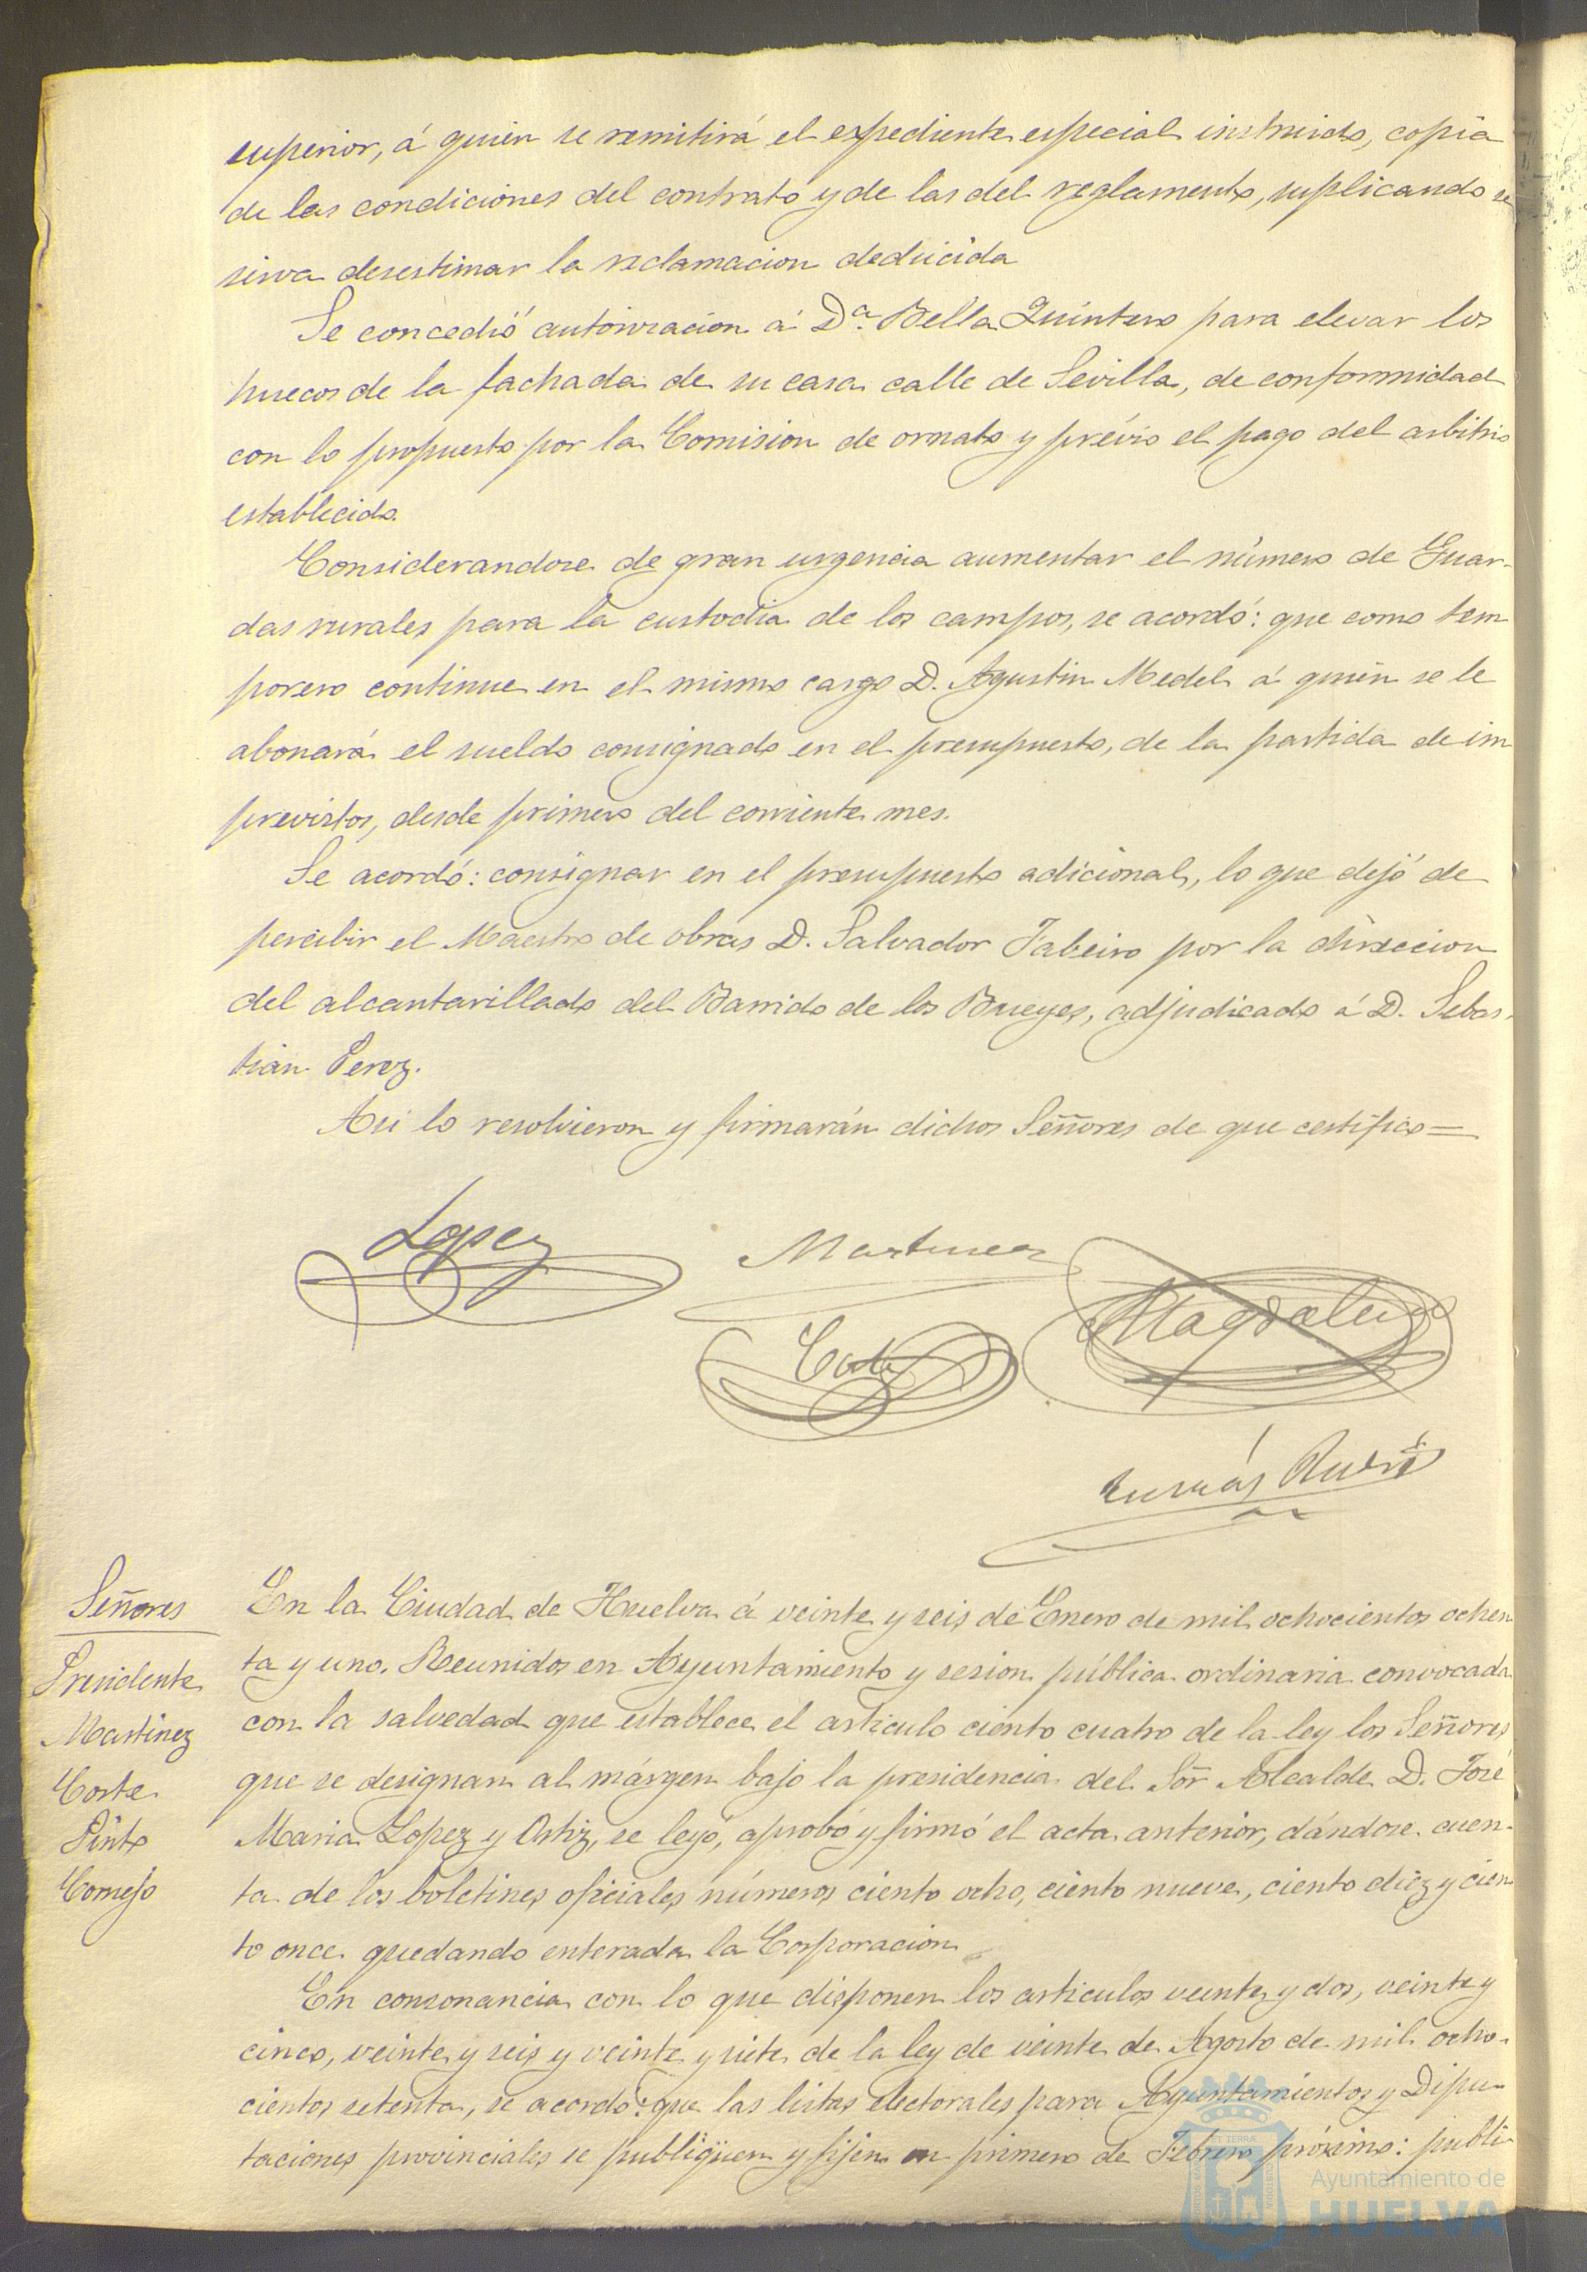 superior, á quien se remitirá el espediente especial instruido, copia
de las condiciones del contrato y de las del reglamento, suplicando se
sirva desestimar la reclamacion deducida
Se concedió autorizacion á D.ª Bella Quintero para elevar los
huecos de la fachada de su casa calle de Sevilla, de conformidad
con lo propuesto por la Comision de ornato y prévio el pago del arbitrio
establecido.
Considerandose de gran urgencia aumentar el número de Guar-
das rurales para la custodia de los campos, se acordó: que como tem
porero continue en el mismo cargo D. Agustin Medel á quien se le
abonará el sueldo consignado en el presupuesto, de la partida de im
previstos, desde primero del corriente mes.
Se acordó: consignar en el presupuesto adicional, lo que dejó de
percibir el Maestro de obras D. Salvador Tabeiro por la direccion
del alcantarillado del Barrido de los Bueyes, adjudicado á D. Sebas-
tian Perez.
Asi lo resolvieron y firmarán dichos Señores de que certifico=
Lopez
Martinez
Magdalena
Corte
Rubio
Señores
Presidente
Martinez
Corte
Pinto
Cornejo
En la Ciudad de Huelva á veinte y seis de Enero de mil ochocientos ochen
ta y uno. Reunidos en Ayuntamiento y sesion pública ordinaria convocada
con la salvedad que establece el articulo ciento cuatro de la ley los Señores
que se designan al márgen bajo la presidencia del Sõr Alcalde D. José
Maria Lopez y Ortiz, se leyó, aprobó y firmó el acta anterior, dándose cuen-
ta de los boletines oficiales números ciento ocho, ciento nueve, ciento diez y cien
to once quedando enterada la Corporacion
En consonancia con lo que disponen los articulos veinte y dos, veinte y
cinco, veinte y seis y veinte y siete de la ley de veinte de Agosto de mil ocho-
cientos setenta, se acordó: que las listas electorales para Ayuntamientos y Dipu-
taciones provinciales se publiquen y fijen en primero de Febrero próximo: publi-
Ayuntamiento de
HUELVA